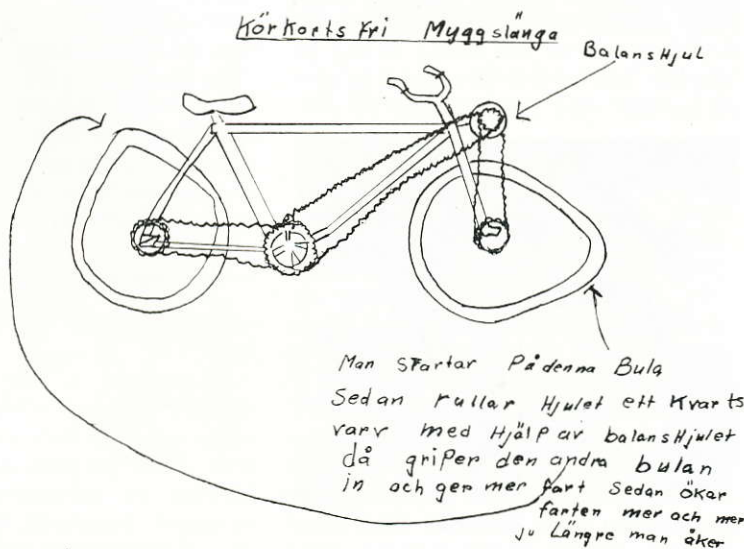 KörKorts Fri Myggslänga
BalansHjul
Man Startar På denna Bula
Sedan rullar Hjulet ett Kvarts
varv med Hjälp av balansHjulet
då griper den andra bulan
in och ger mer fart Sedan ökar
farten mer och mer
ju Längre man åker